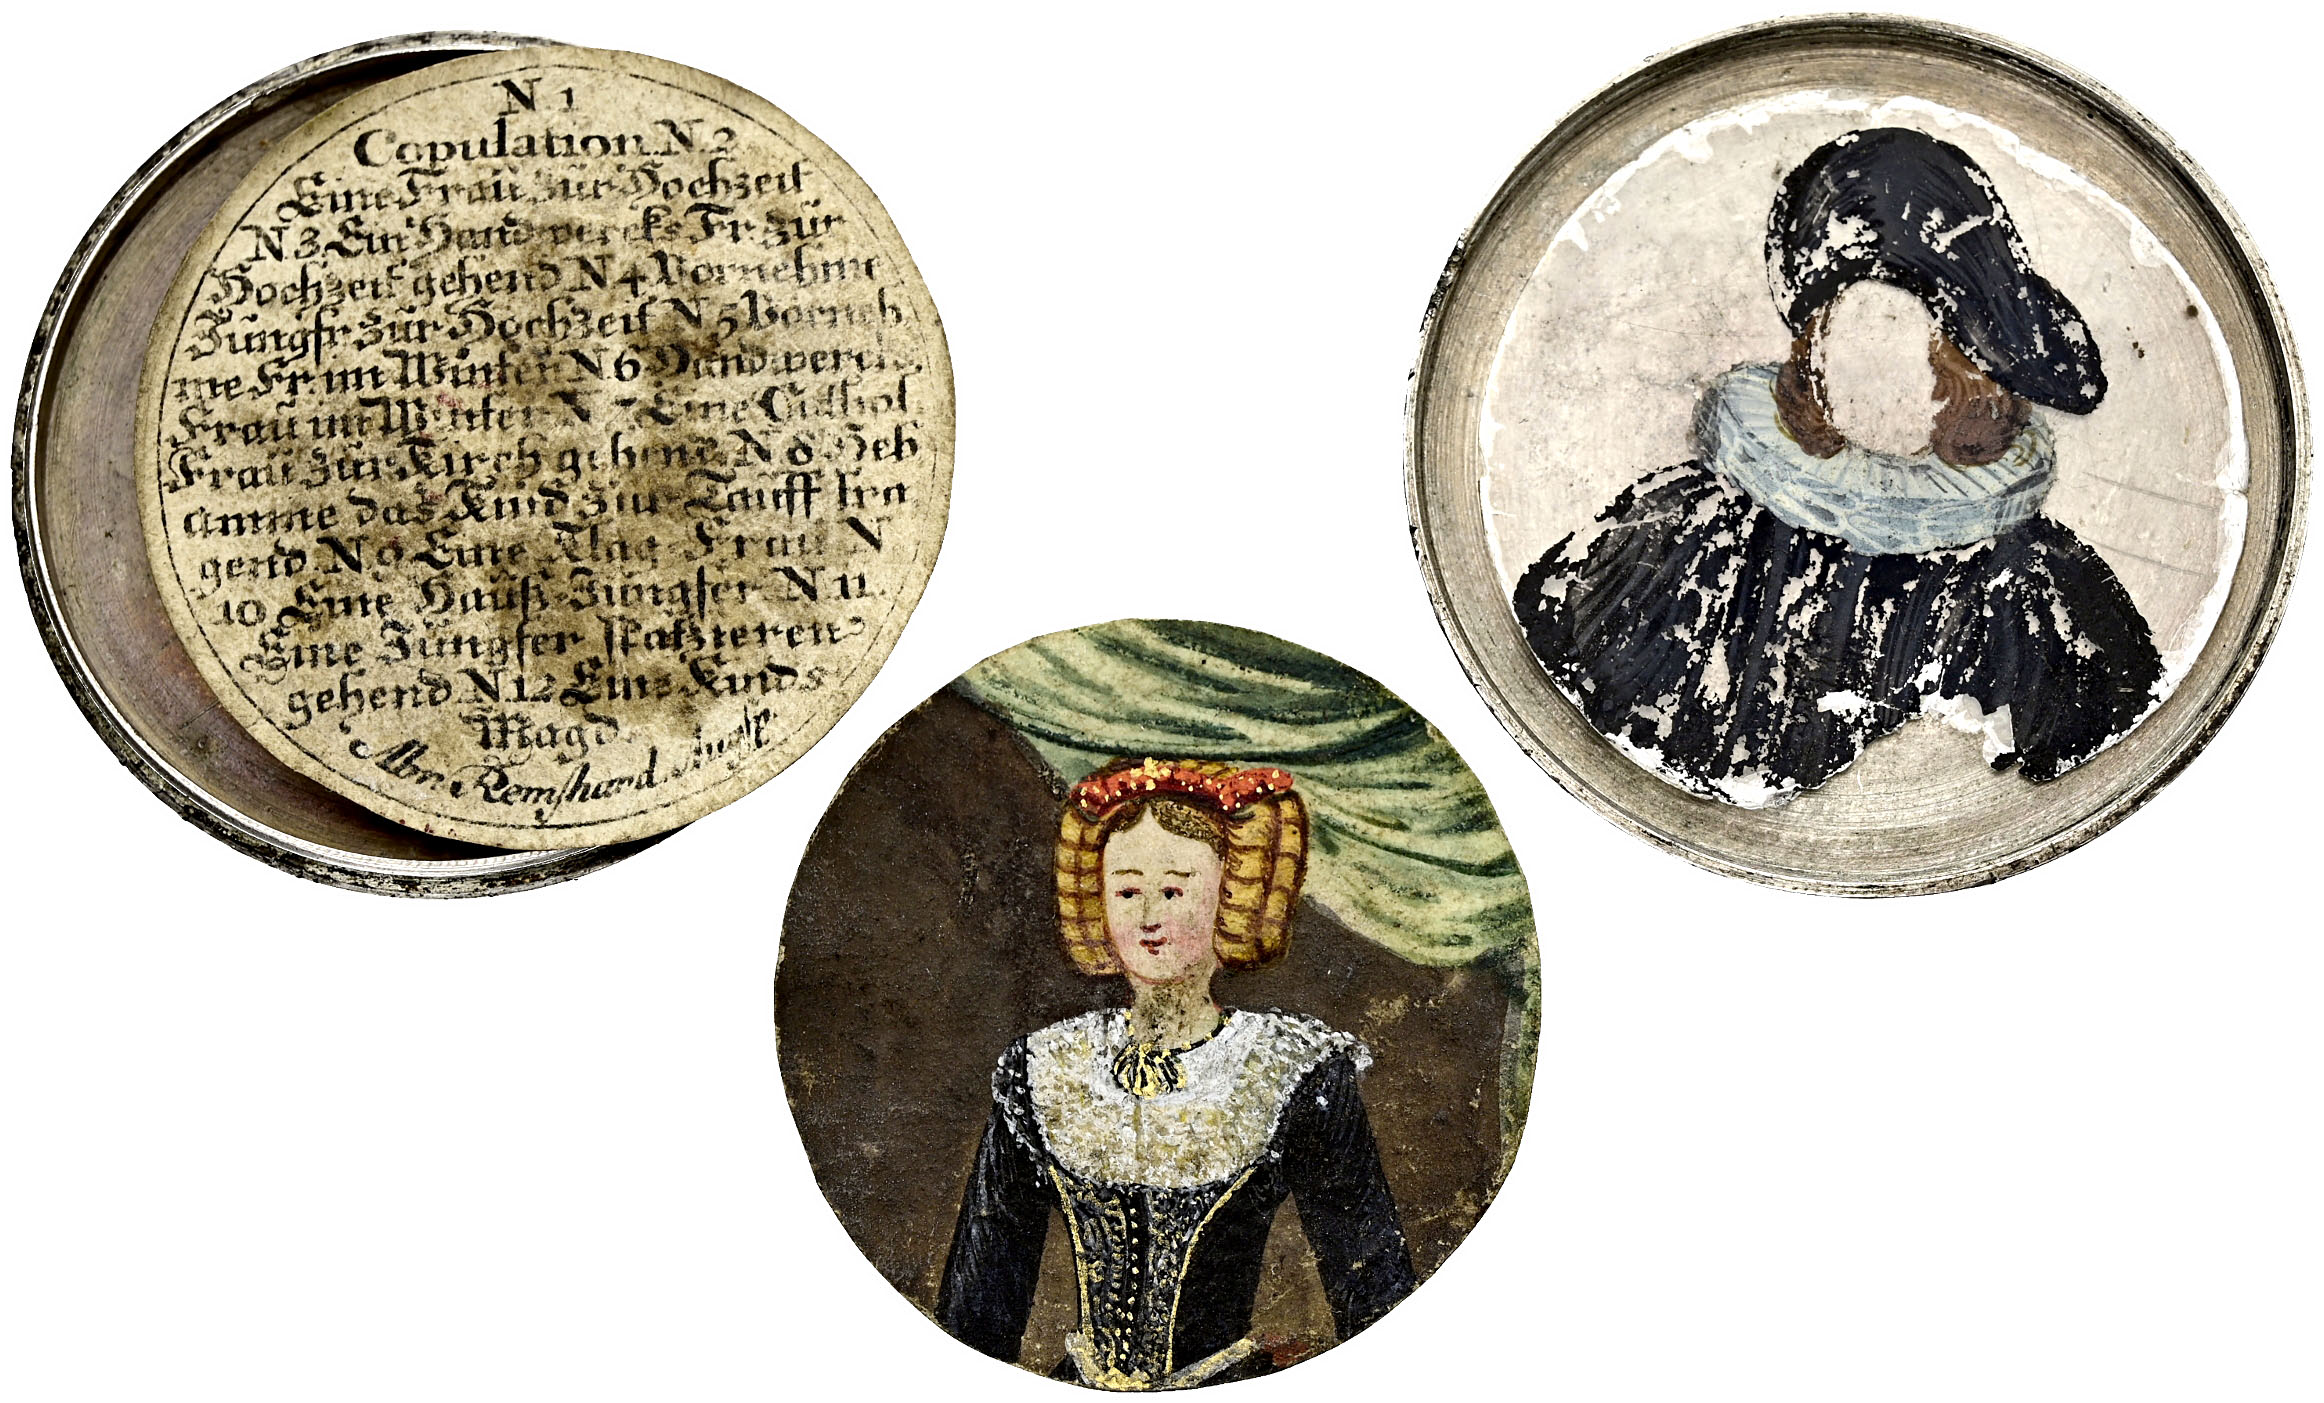 N 1
Copulation. N. 2
Eine Fraü zür Hochzeit
N 3 Ein Handwercks Fr. zür
Hochzeit gehend N 4 Vornehme
Jüngfr. zür Hochzeit N 5 Borneh
me Fr. im Winter N 6 Handwercks
Fraü im Winter N 7 Eine Cathol.
Fraü zür Kirch gehend N 8 Heb
amme das Kind zür Tauff tra
gend N 9 Eine Klag-Fraü N
10 Eine Haüß-Jüngfer N 11
Eine Jüngfer spatzieren
gehend N 12 Eine Kinds
Magd.
Abr. Remshard Augsp.